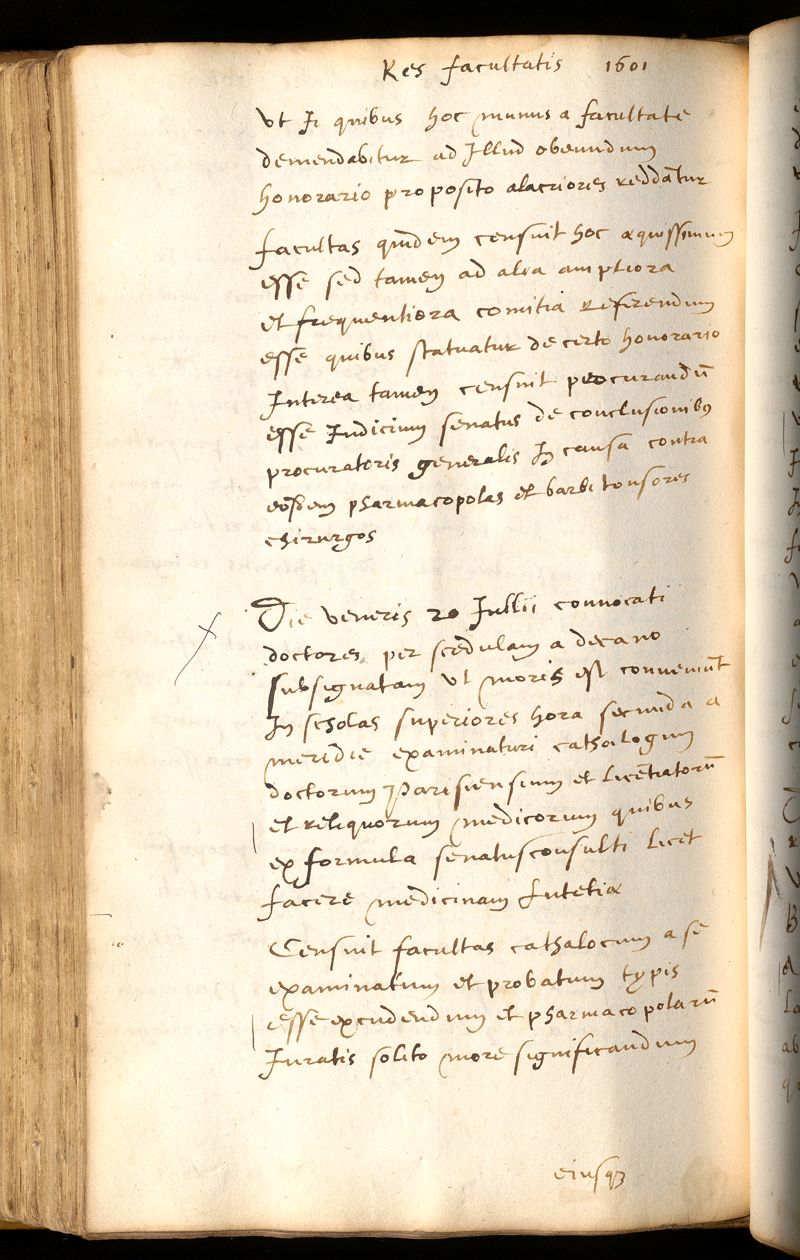 Res facultatis 1601
Ut Ii quibus hoc munus a facultate
demendabitur ad Illud obeundum
honorario proposito alacriores reddātur
facultas quidem censuit hoc æquissimum
esse sed tamen ad alia ampliora
et frequentiora comitia referendum
esse quibus statuatur de certo honorario
Interea tamen censuit procurandū
esse Iudicium senatus de conclusionibus
procuratoris generalis In causa contra
eosdem pharmacopolas et barbitonsores
chirurgos
Die Veneris 20 Iullii connocati
doctores per scedulam a decano
subsignatam ut moris est conveniunt
In scholas superiores hora secunda a
meridie examinaturi cathalogum
doctorum parisiensium et licētiatorū
et reliquorum medicorum quibus
ex formula senatusconsulti licet
facere medicinam Lutetiæ
Censuit facultas cathalocum a se
examinatum et probatum typis
esse excudendum et pharmacopolarū
Iuratis solito more significandum
eiusq3